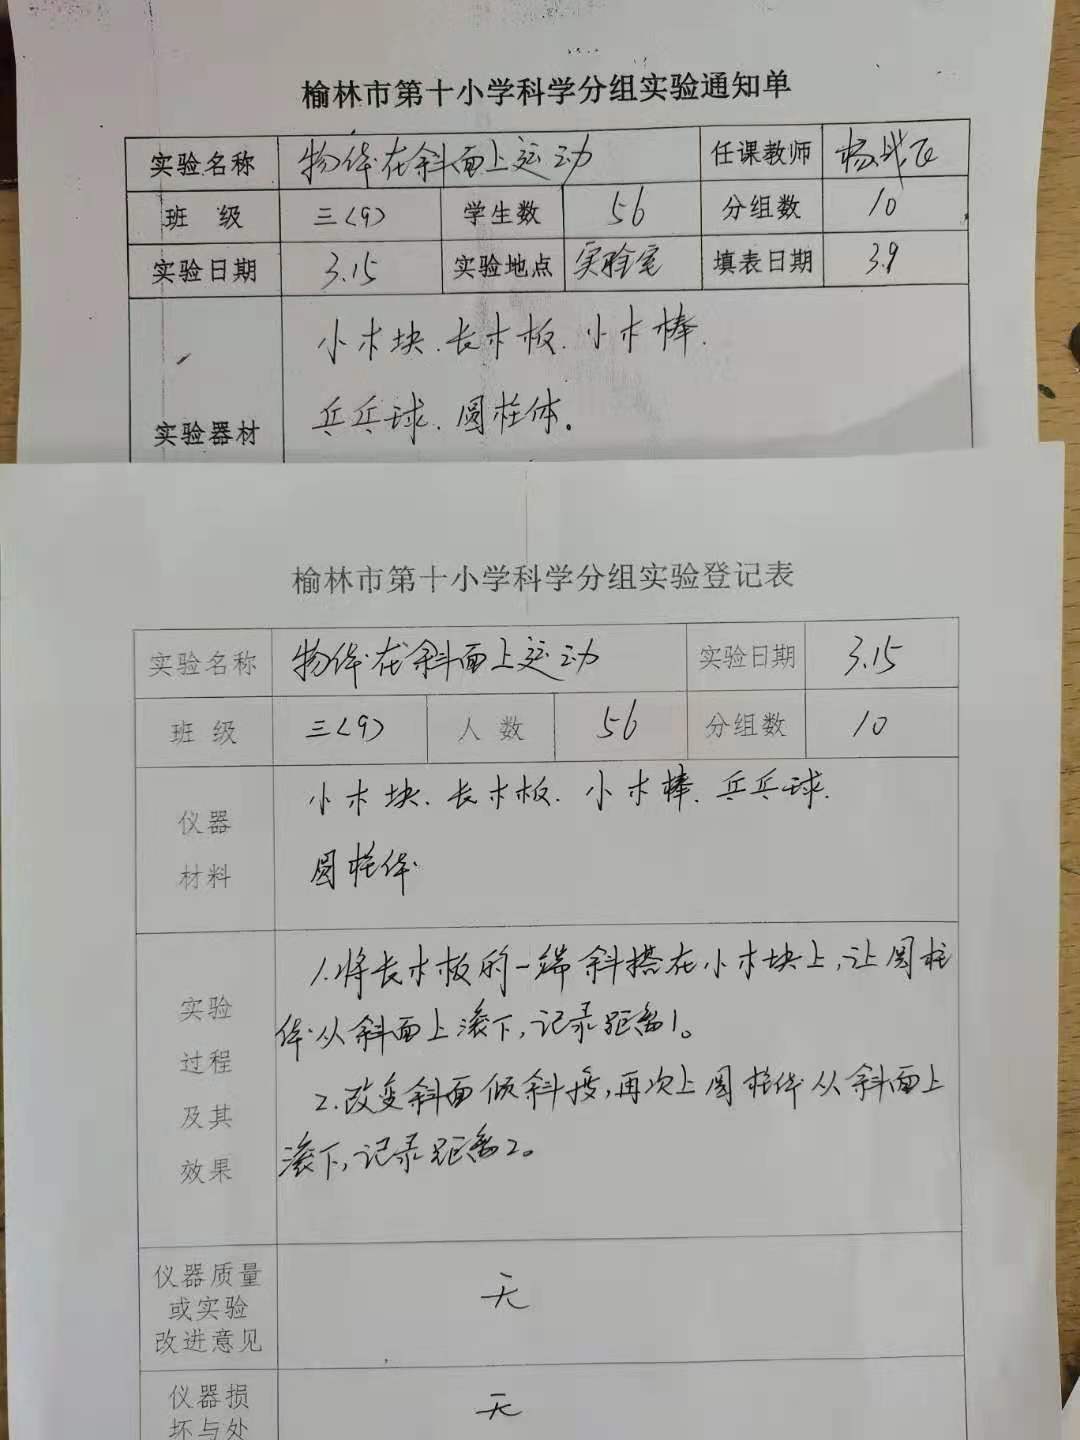 榆林市第十小学科学分组实验通知单
实验名称 物体在斜面上运动 任课教师 杨
班 级 三(9) 学生数 56 分组数 10
实验日期 3.15 实验地点 实验室 填表日期 3.9
实验器材
小木块.长木板.小木棒.
乒乓球.圆柱体。
榆林市第十小学科学分组实验登记表
实验名称 物体在斜面上运动 实验日期 3.15
班 级 三(9) 人 数 56 分组数 10
仪器
材料
小木块.长木板.小木棒.乒乓球.
圆柱体
实验
过程
及其
效果
1.将长木板的一端斜搭在小木块上,让圆柱
体从斜面上滚下,记录距离1。
2.改变斜面倾斜度,再次上圆柱体从斜面上
滚下,记录距离2。
仪器质量
或实验
改进意见
无
仪器损
坏与处
无